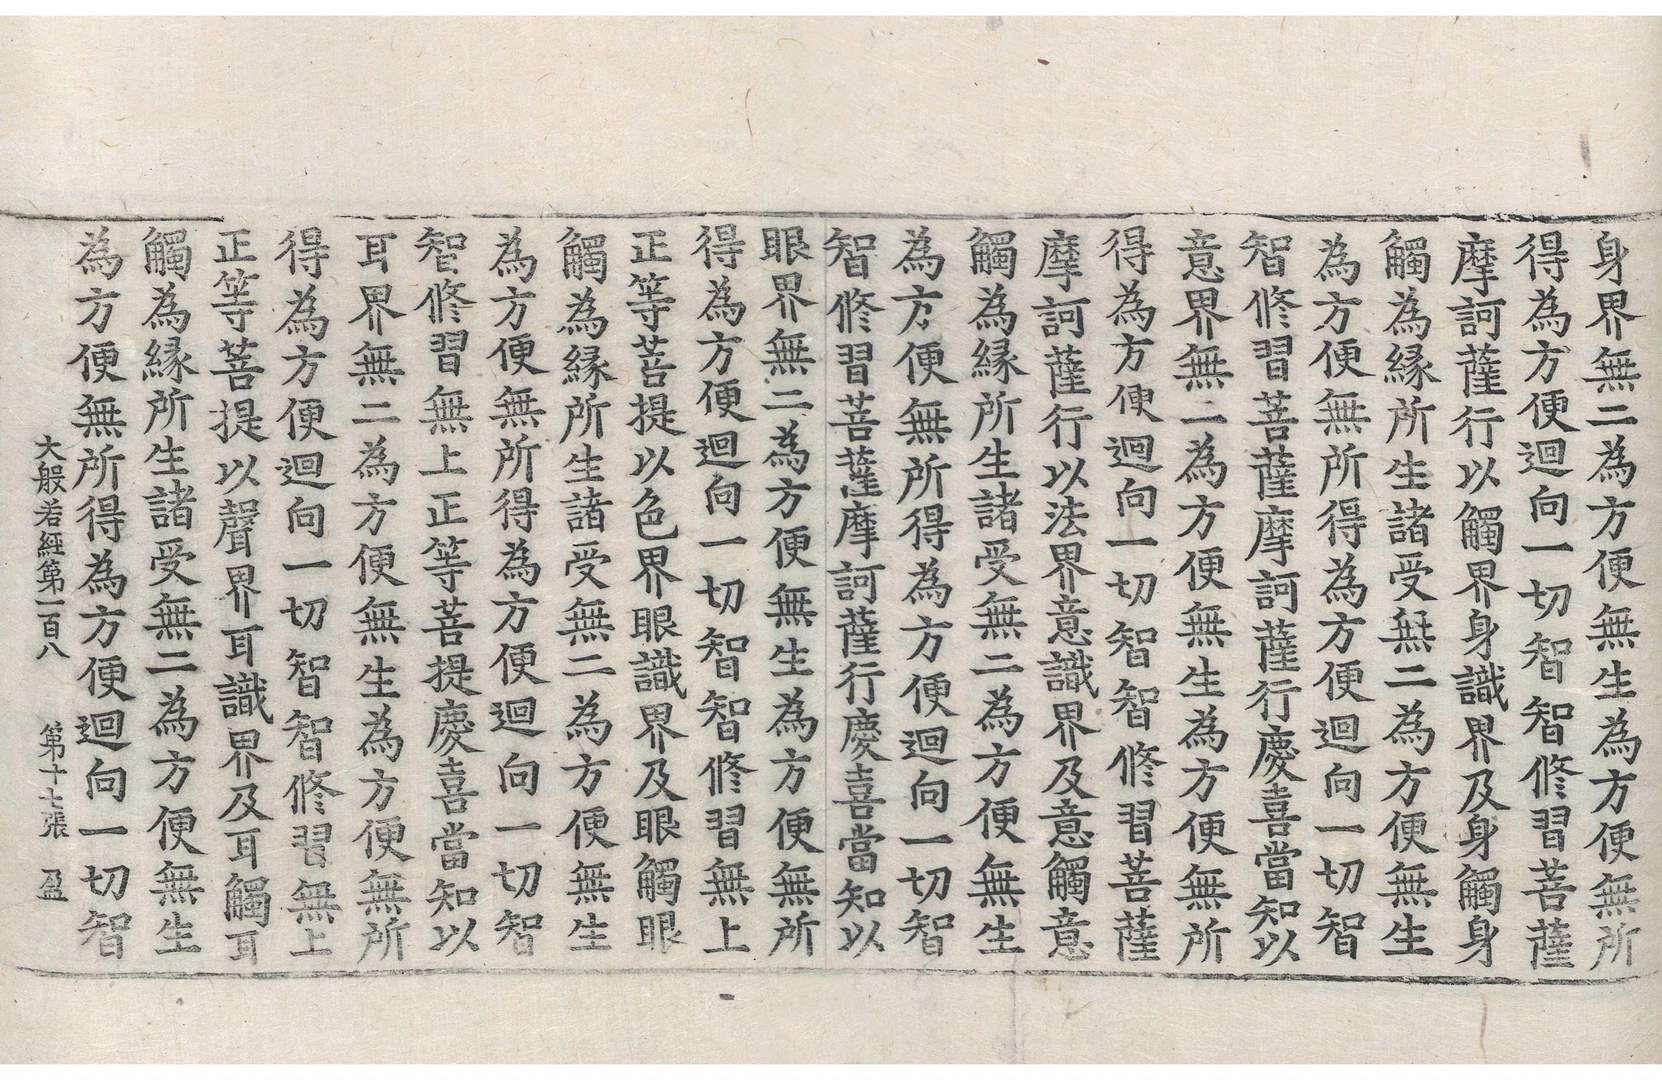 身界無二為方便無生為方便無所
得為方便迴向一切智智修習菩薩
摩訶薩行以觸界身識界及身觸身
觸為緣所生諸受無二為方便無生
為方便無所得為方便迴向一切智
智修習菩薩摩訶薩行慶喜當知以
意界無二為方便無生為方便無所
得為方便迴向一切智智修習菩薩
摩訶薩行以法界意識界及意觸意
觸為緣所生諸受無二為方便無生
為方便無所得為方便迴向一切智
智修習菩薩摩訶薩行慶喜當知以
眼界無二為方便無生為方便無所
得為方便迴向一切智智修習無上
正等菩提以色界眼識界及眼觸眼
觸為緣所生諸受無二為方便無生
為方便無所得為方便迴向一切智
智修習無上正等菩提慶喜當知以
耳界無二為方便無生為方便無所
得為方便迴向一切智智修習無上
正等菩提以聲界耳識界及耳觸耳
觸為緣所生諸受無二為方便無生
為方便無所得為方便迴向一切智
大般若經第一百八 第十七張 盈